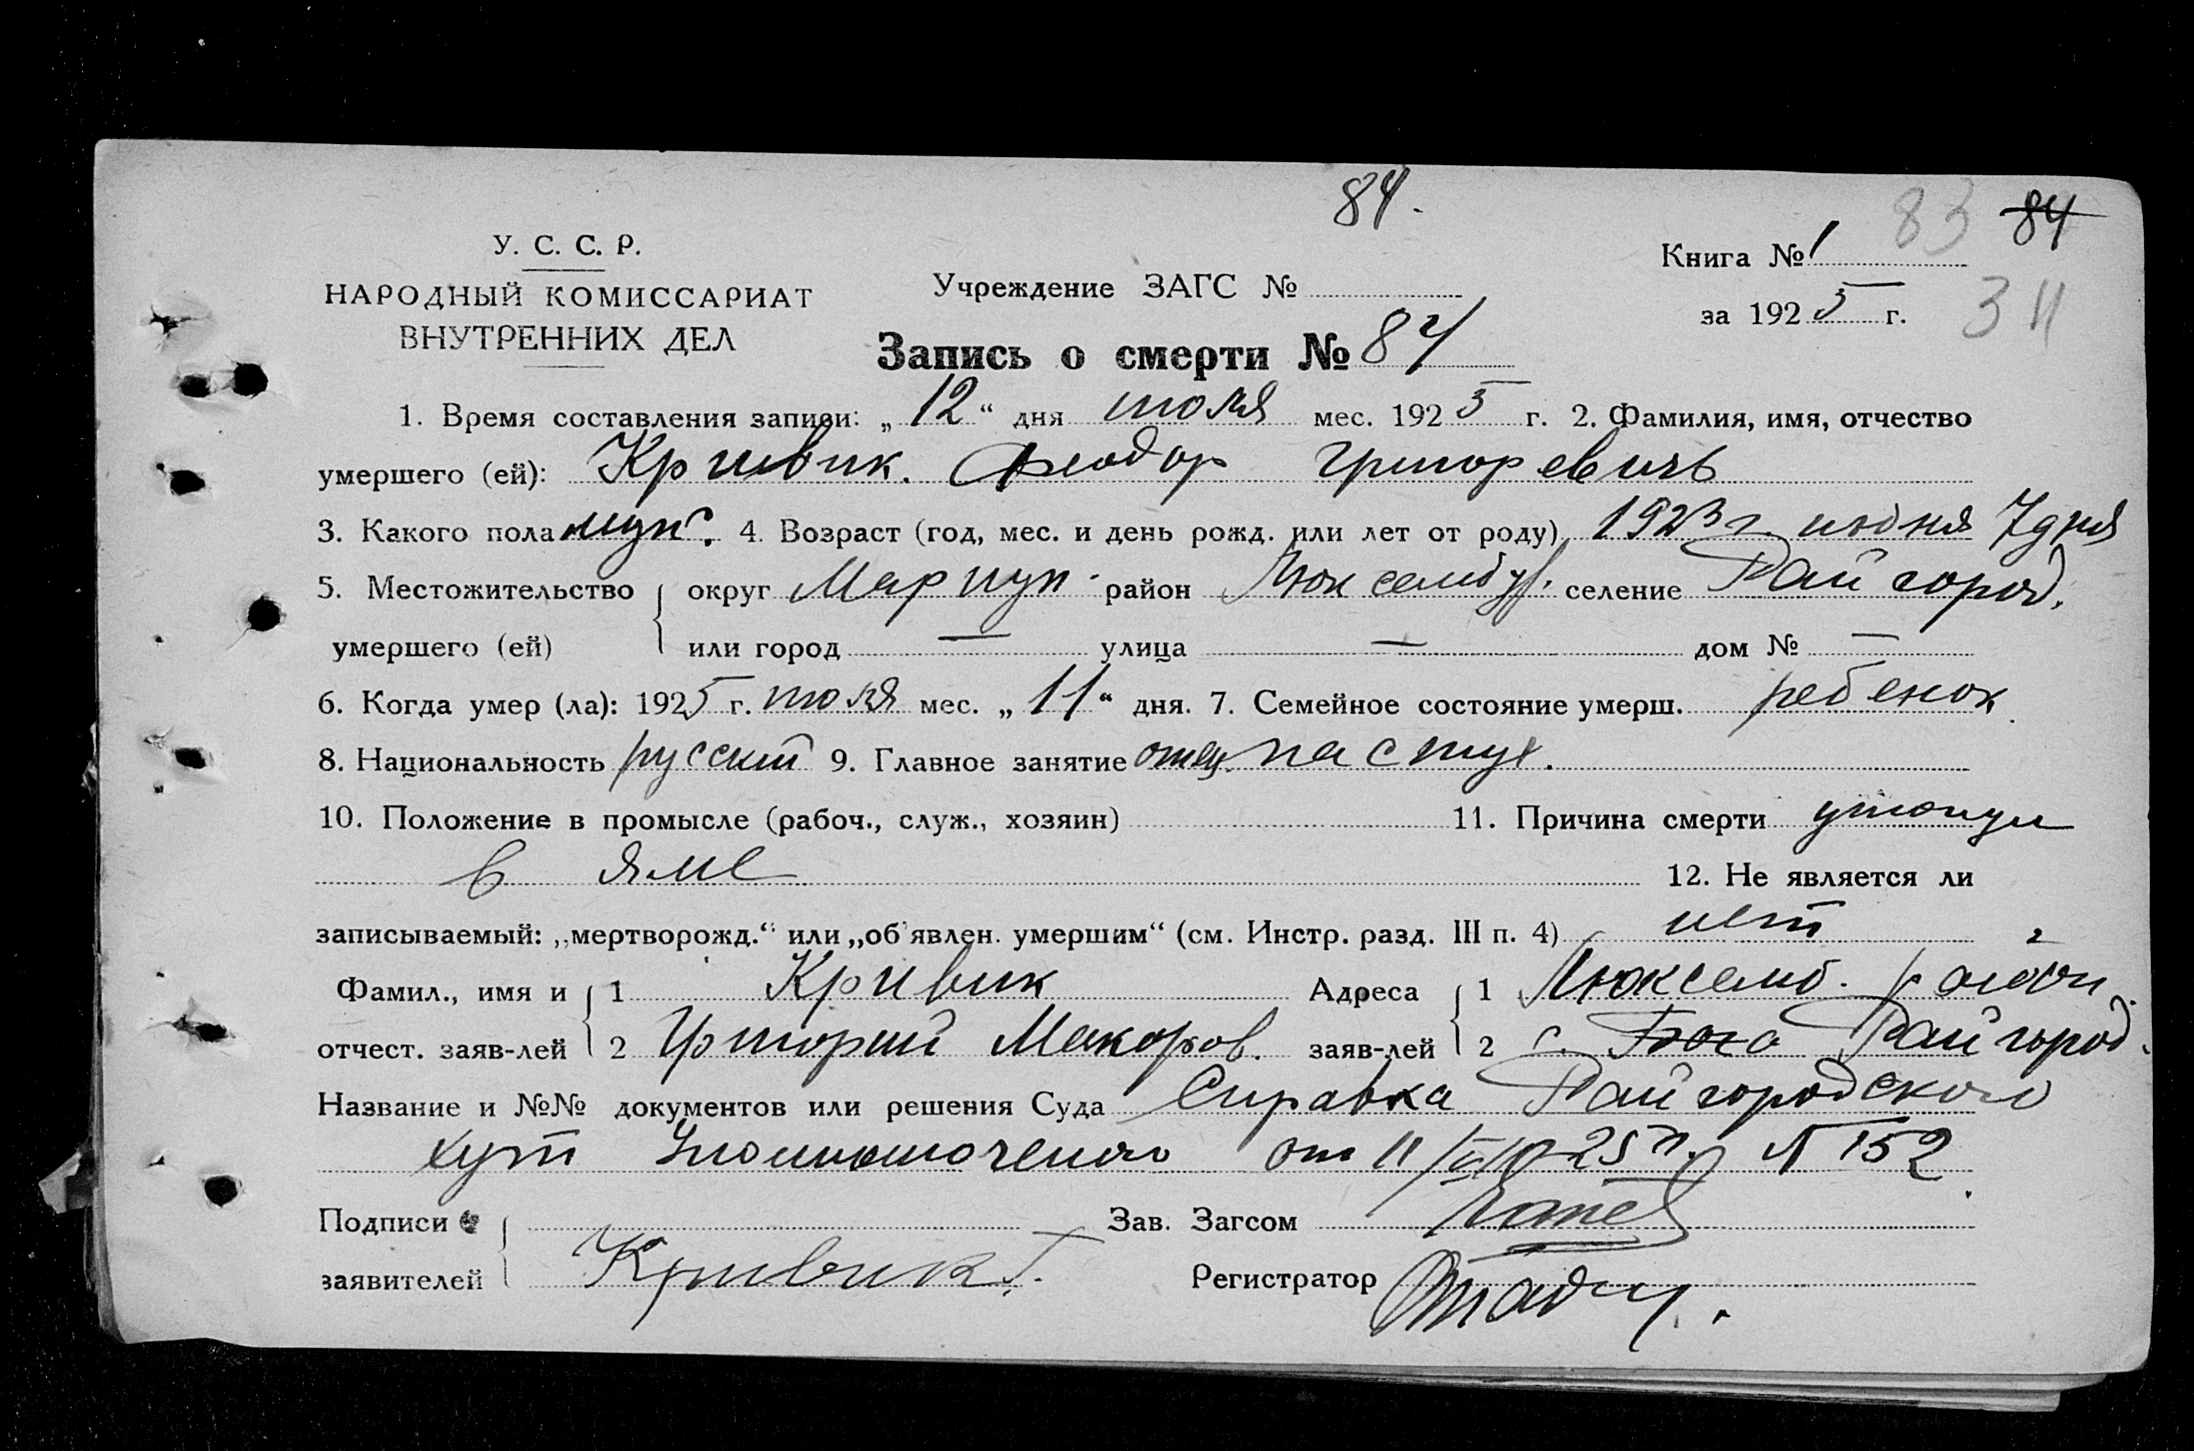 84.
83 84
У. С. С. Р.
Книга № 1
НАРОДНЫЙ КОМИССАРИАТ
Учреждение ЗАГС №
ВНУТРЕННИХ ДЕЛ
за 1925 г.
34
Запись о смерти № 84
1. Время составления записи: „12“ дня июля мес. 1925 г. 2. Фамилия, имя, отчество
умершего (ей): Кривик. Феодор Григоревичь
3. Какого пола муж. 4. Возраст (год, мес. и день рожд. или лет от роду) 1923 г. июня 7 дня
5. Местожительство округ Мариуп. район Люксембур. селение Райгород.
умершего (ей) или город — улица — дом № —
6. Когда умер (ла): 1925 г. июля мес. „11“ дня. 7. Семейное состояние умерш. ребенок
8. Национальность русский 9. Главное занятие отец. пастух.
10. Положение в промысле (рабоч., служ., хозяин) 11. Причина смерти утонул
в яме
12. Не является ли
записываемый: „мертворожд.“ или „об'явлен. умершим“ (см. Инстр. разд. III п. 4) нет
Фамил., имя и 1 Кривик Адреса 1 Люксемб. района
отчест. заяв-лей 2 Григорий Макаров. заяв-лей 2 с. Райгород.
Название и №№ документов или решения Суда Справка Райгородского
хут Уполномоченого от 11/ 25 г. № 152
Подписи Зав. Загсом
заявителей Кривик Г. Регистратор